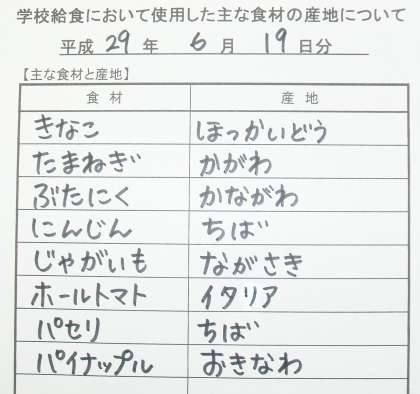 学校給食において使用した主な食材の産地について
平成 29 年 6 月 19 日分
【主な食材と産地】
食材 産地
きなこ ほっかいどう
たまねぎ かがわ
ぶたにく かながわ
にんじん ちば
じゃがいも ながさき
ホールトマト イタリア
パセリ ちば
パイナップル おきなわ